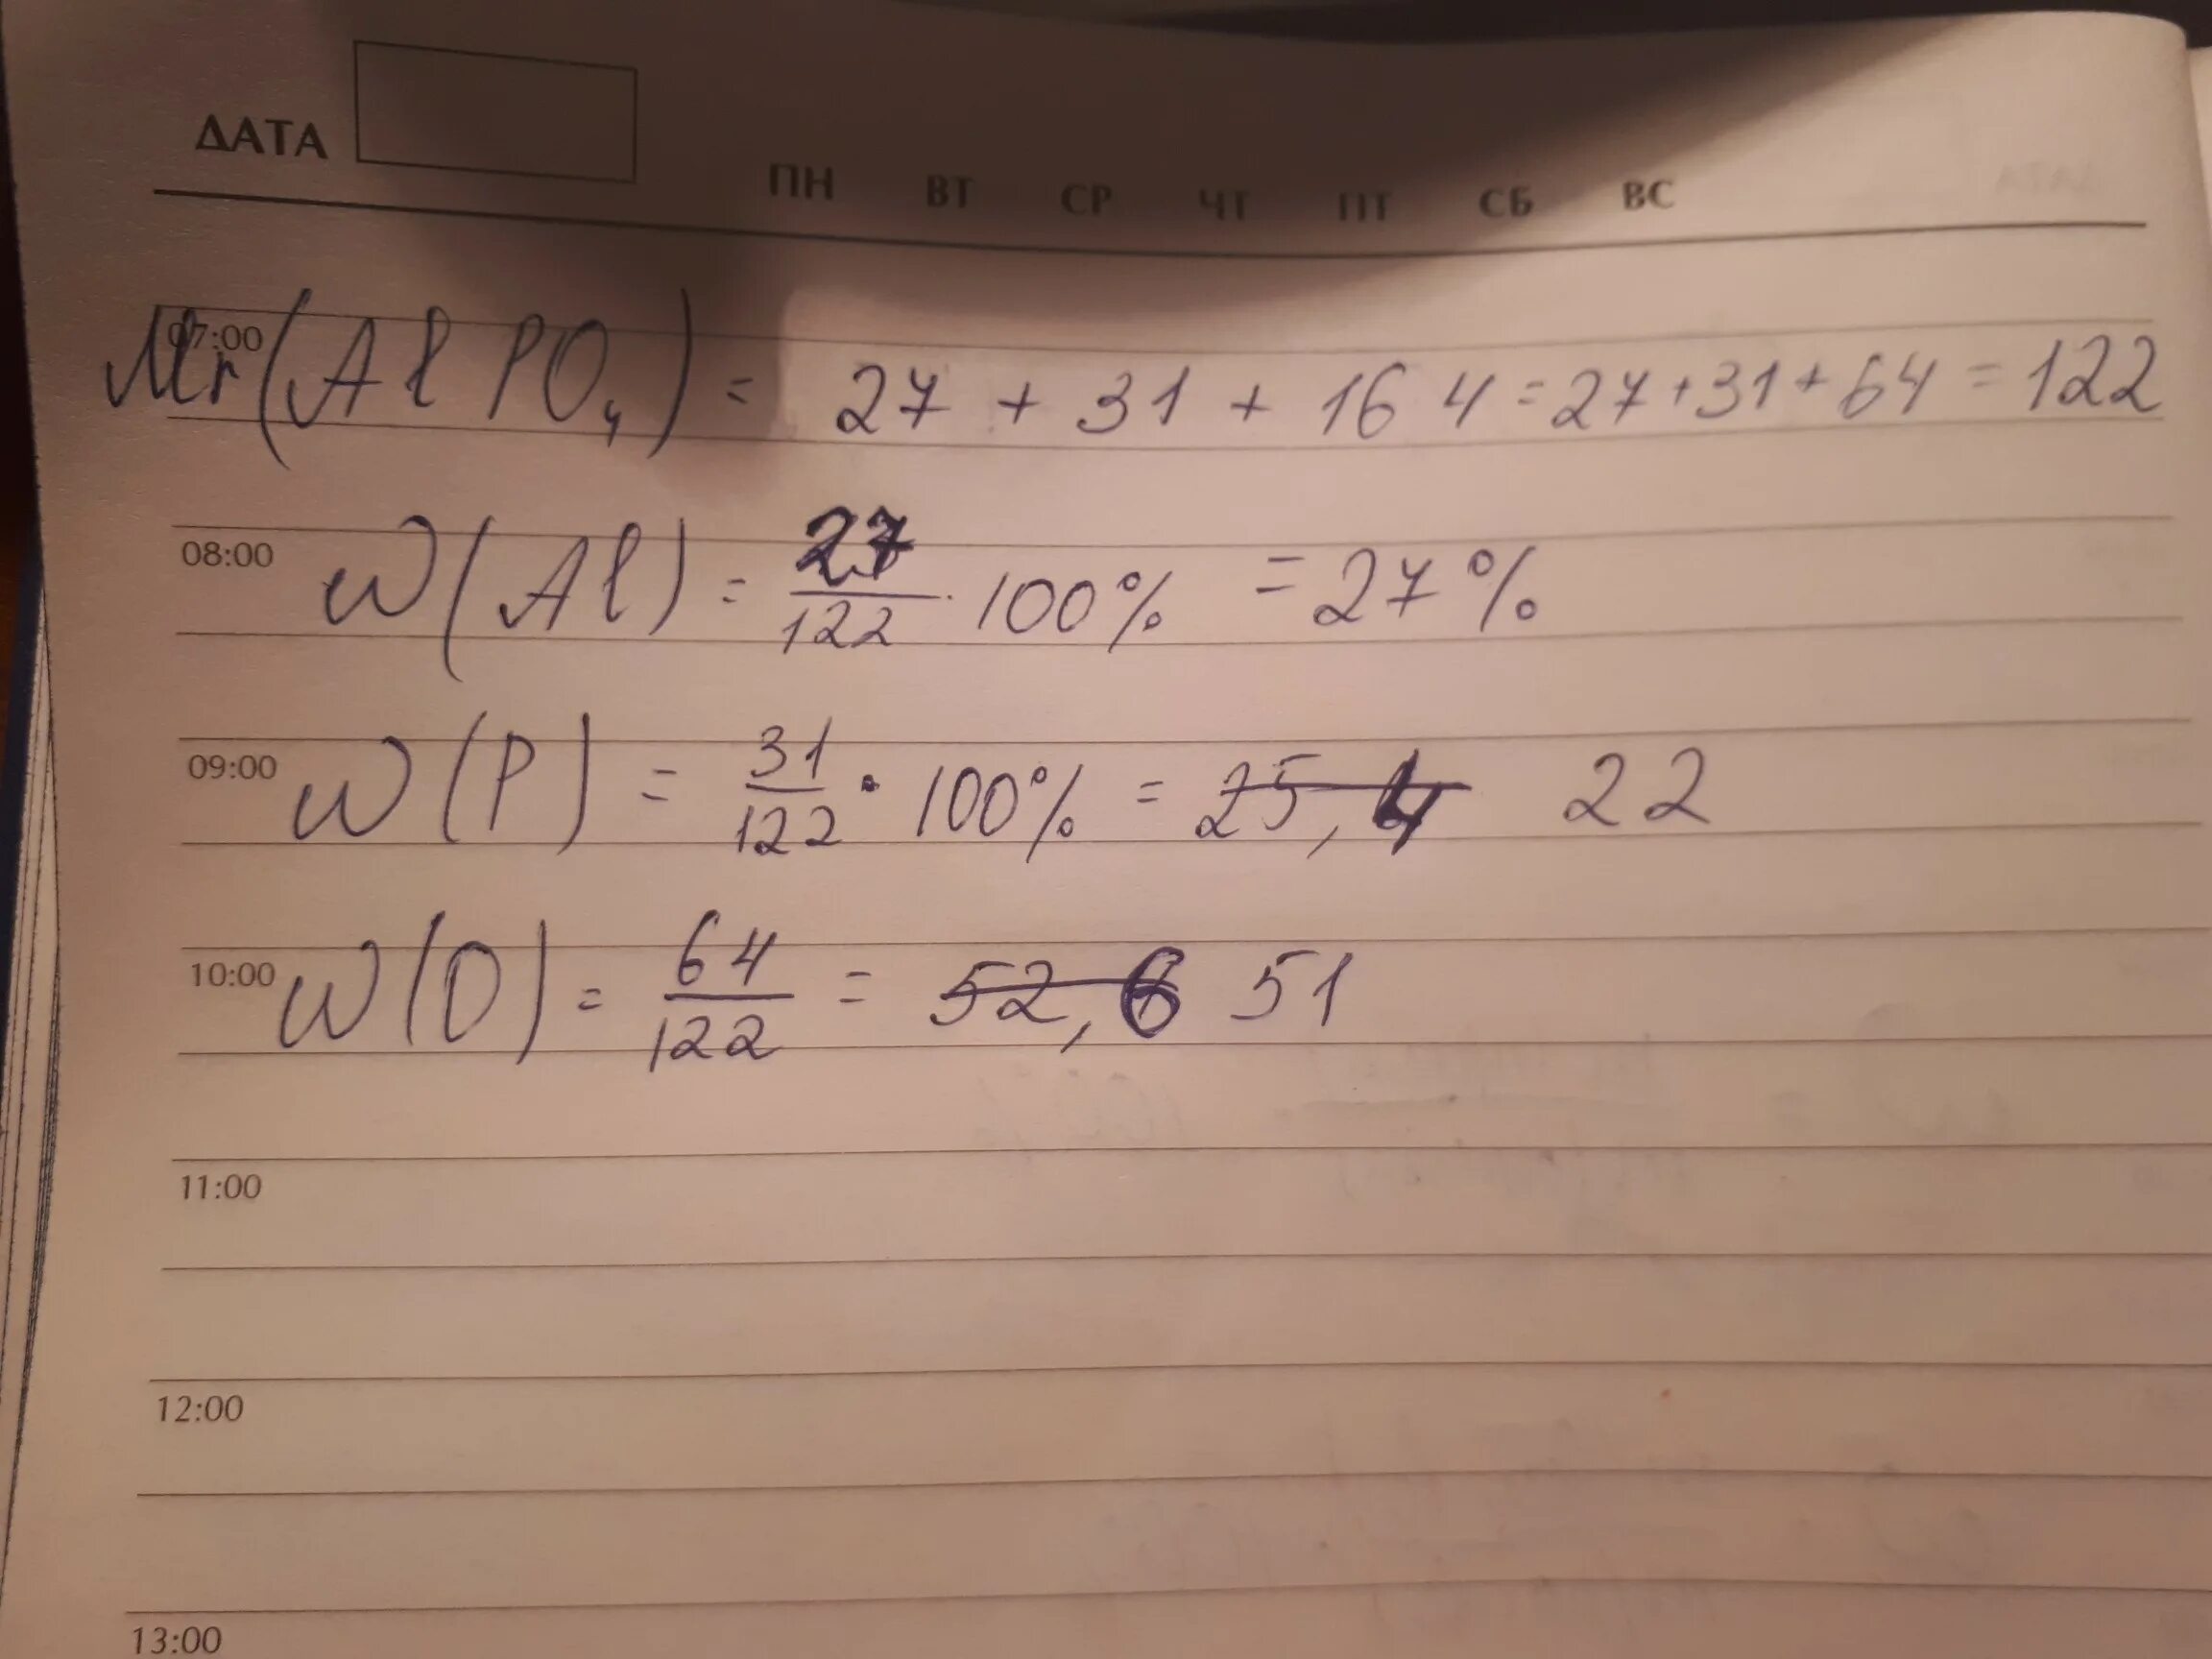 ДАТА
ПН ВТ СР ЧТ ПТ СБ ВС
07:00
Mr(AlPO₄) = 27 + 31 + 16 4 = 27+31+64 = 122
08:00
W(Al) = 27/122 · 100% = 27%
09:00
W(P) = 31/122 · 100% = 25,4 22
10:00
W(O) = 64/122 = 52,6 51
11:00
12:00
13:00